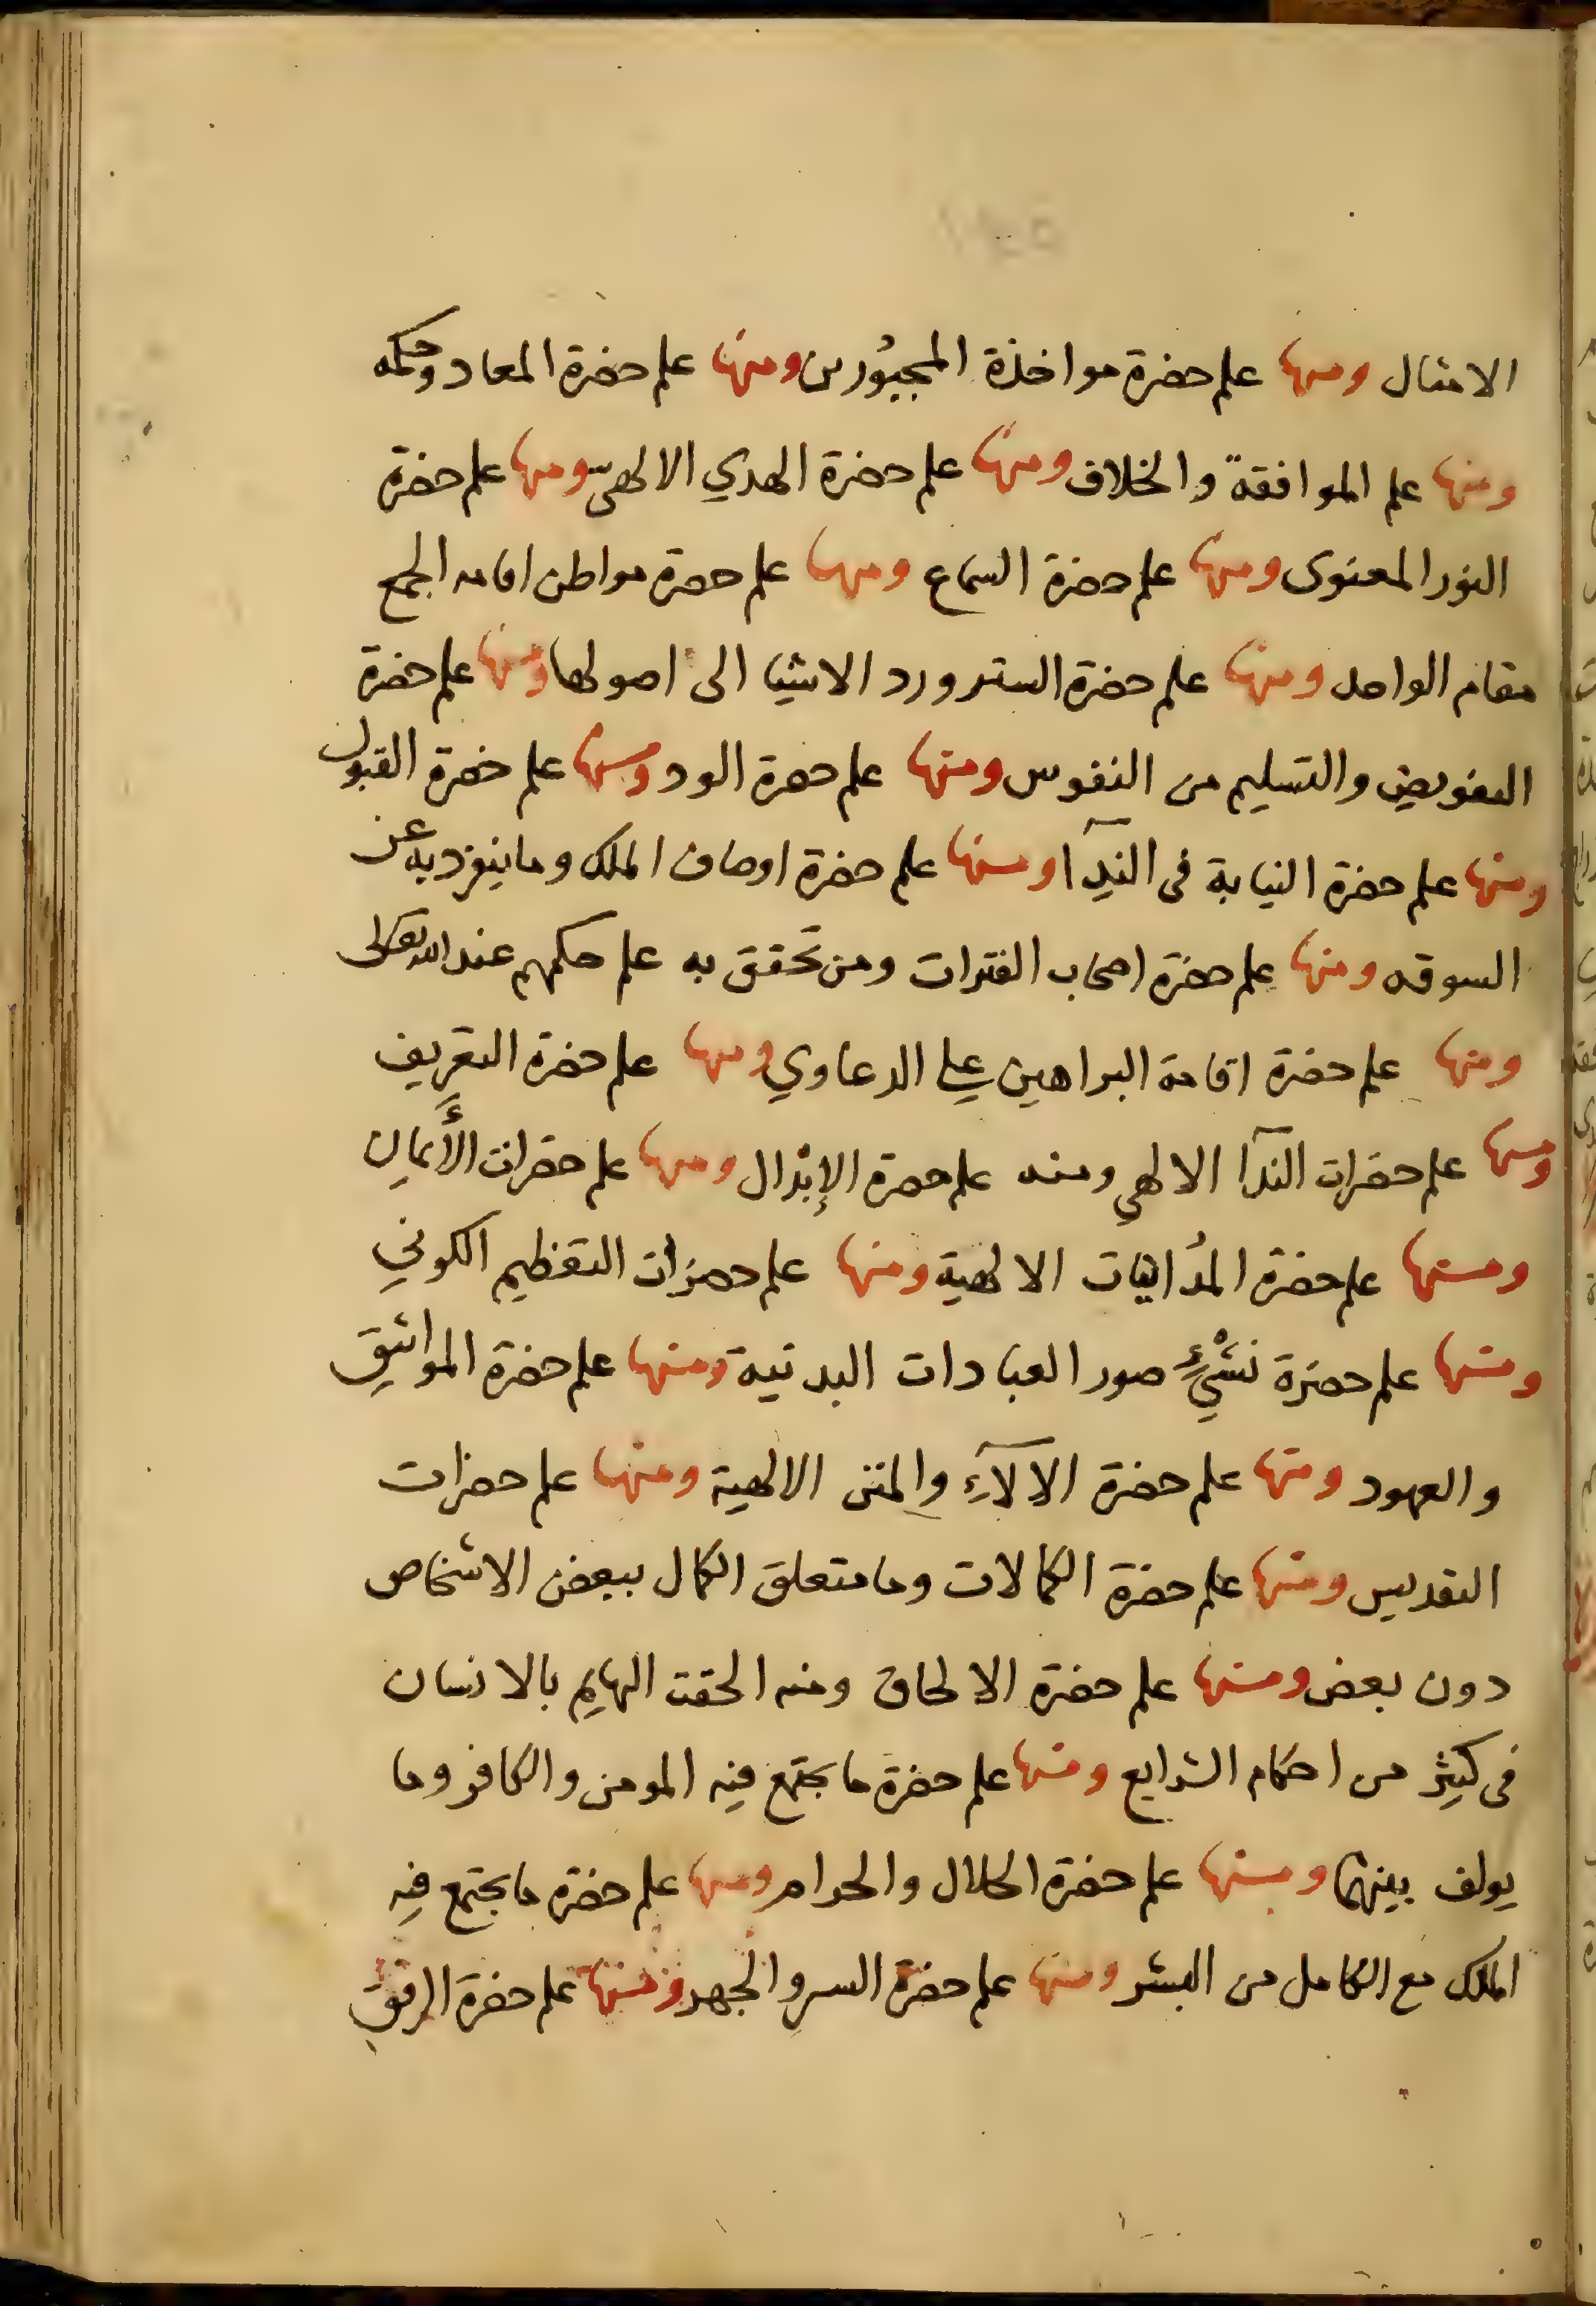 الامثال ومنها علم حضرة مواخذة المجبورين ومنها علم حضرة المعاد وحكمه
ومنها علم الموافقة والخلاف ومنها علم حضرة الهدي الالهى ومنها علم حضرة
النور المعنوى ومنها علم حضرة السماع ومنها علم حضرة مواطن اقامه الجمع
مقام الواحد ومنها علم حضرة الستر ورد الاشيا الى اصولها ومنها علم حضرة
التفويض والتسليم من النفوس ومنها علم حضرة الود ومنها علم حضرة القبول
ومنها علم حضرة النيابة فى الندآ ومنها علم حضرة اوصاف الملك وما ينفرد به عن
السوقه ومنها علم حضرة اصحاب الفترات ومن تحقق به علم حكمهم عند الله تعالى
ومنها علم حضرة اقامة البراهين على الدعاوي ومنها علم حضرة التعريف
ومنها علم حضرات الندآ الالهي ومنه علم حضرة الإبدال ومنها علم حضرات الأيمان
ومنها علم حضرة المداينات الالهية ومنها علم حضرات التعظيم الكوني
ومنها علم حضرة نشْيءِ صور العبادات البدنية ومنها علم حضرة المواثيق
والعهود ومنها علم حضرة الآلآء والمنن الالهية ومنها علم حضرات
التقديس ومنها علم حضرة الكمالات وما متعلق الكمال ببعض الاشخاص
دون بعض ومنها علم حضرة الالحاق ومنه الحقت البهايم بالانسان
فى كثير من احكام الشرايع ومنها علم حضرة ما يجتمع فيه المومن والكافر وما
يولف بينهما ومنها علم حضرة الحلال والحرام ومنها علم حضرة ما يجتمع فيه
الملك مع الكامل من البشر ومنها علم حضرة السر والجهر ومنها علم حضرة الرفق